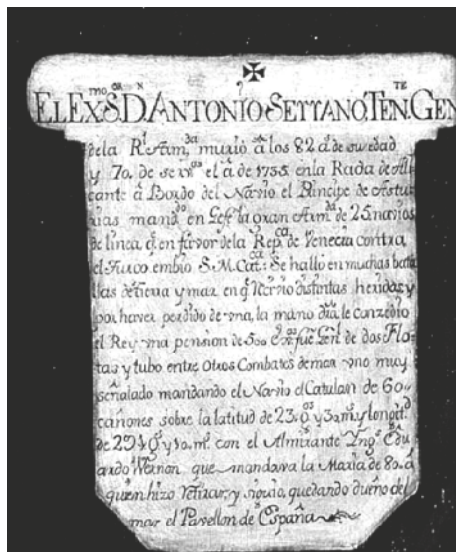 ✠
EL EX.ᵐᵒ S.ᵒʳ D.ⁿ ANTONIO SERRANO, TEN.ᵀᴱ GEN
de la R.ˡ Arm.ᵈᵃ murio â los 82 a.ˢ de su edad
y 70. de serv.ᵒˢ el â de 1735. en la Rada de Ali
cante â Bordo del Navio el Principe de Astu
rias mand.ᵈᵒ en Gefe la gran Arm.ᵈᵃ de 25 navios
de linea q.ᵉ en favor de la Rep.ᶜᵃ de Venecia contra
el Turco embio S. M. Cat.ᶜᵃ: Se hallo en muchas bata
llas de tierra y mar en q.ᵉ recivio distintas heridas y
por haver perdido de una, la mano dra. le concedio
el Rey una pension de 500 fue Gen.ˡ de dos Flo
tas y tubo entre otros Combates de mar uno muy
señalado mandando el Navio el Catalan de 60
cañones sobre la latitud de 23 g.ᵒˢ y 32 m.ˢ y longit.ᵈ
de 294 g.ˢ y 10. m.ˢ con el Almirante Yng.ˢ Edu
ardo Wernon que mandava la Maria de 80. â
quien hizo retirar, y siguio, quedando dueño del
mar el Pavellon de España